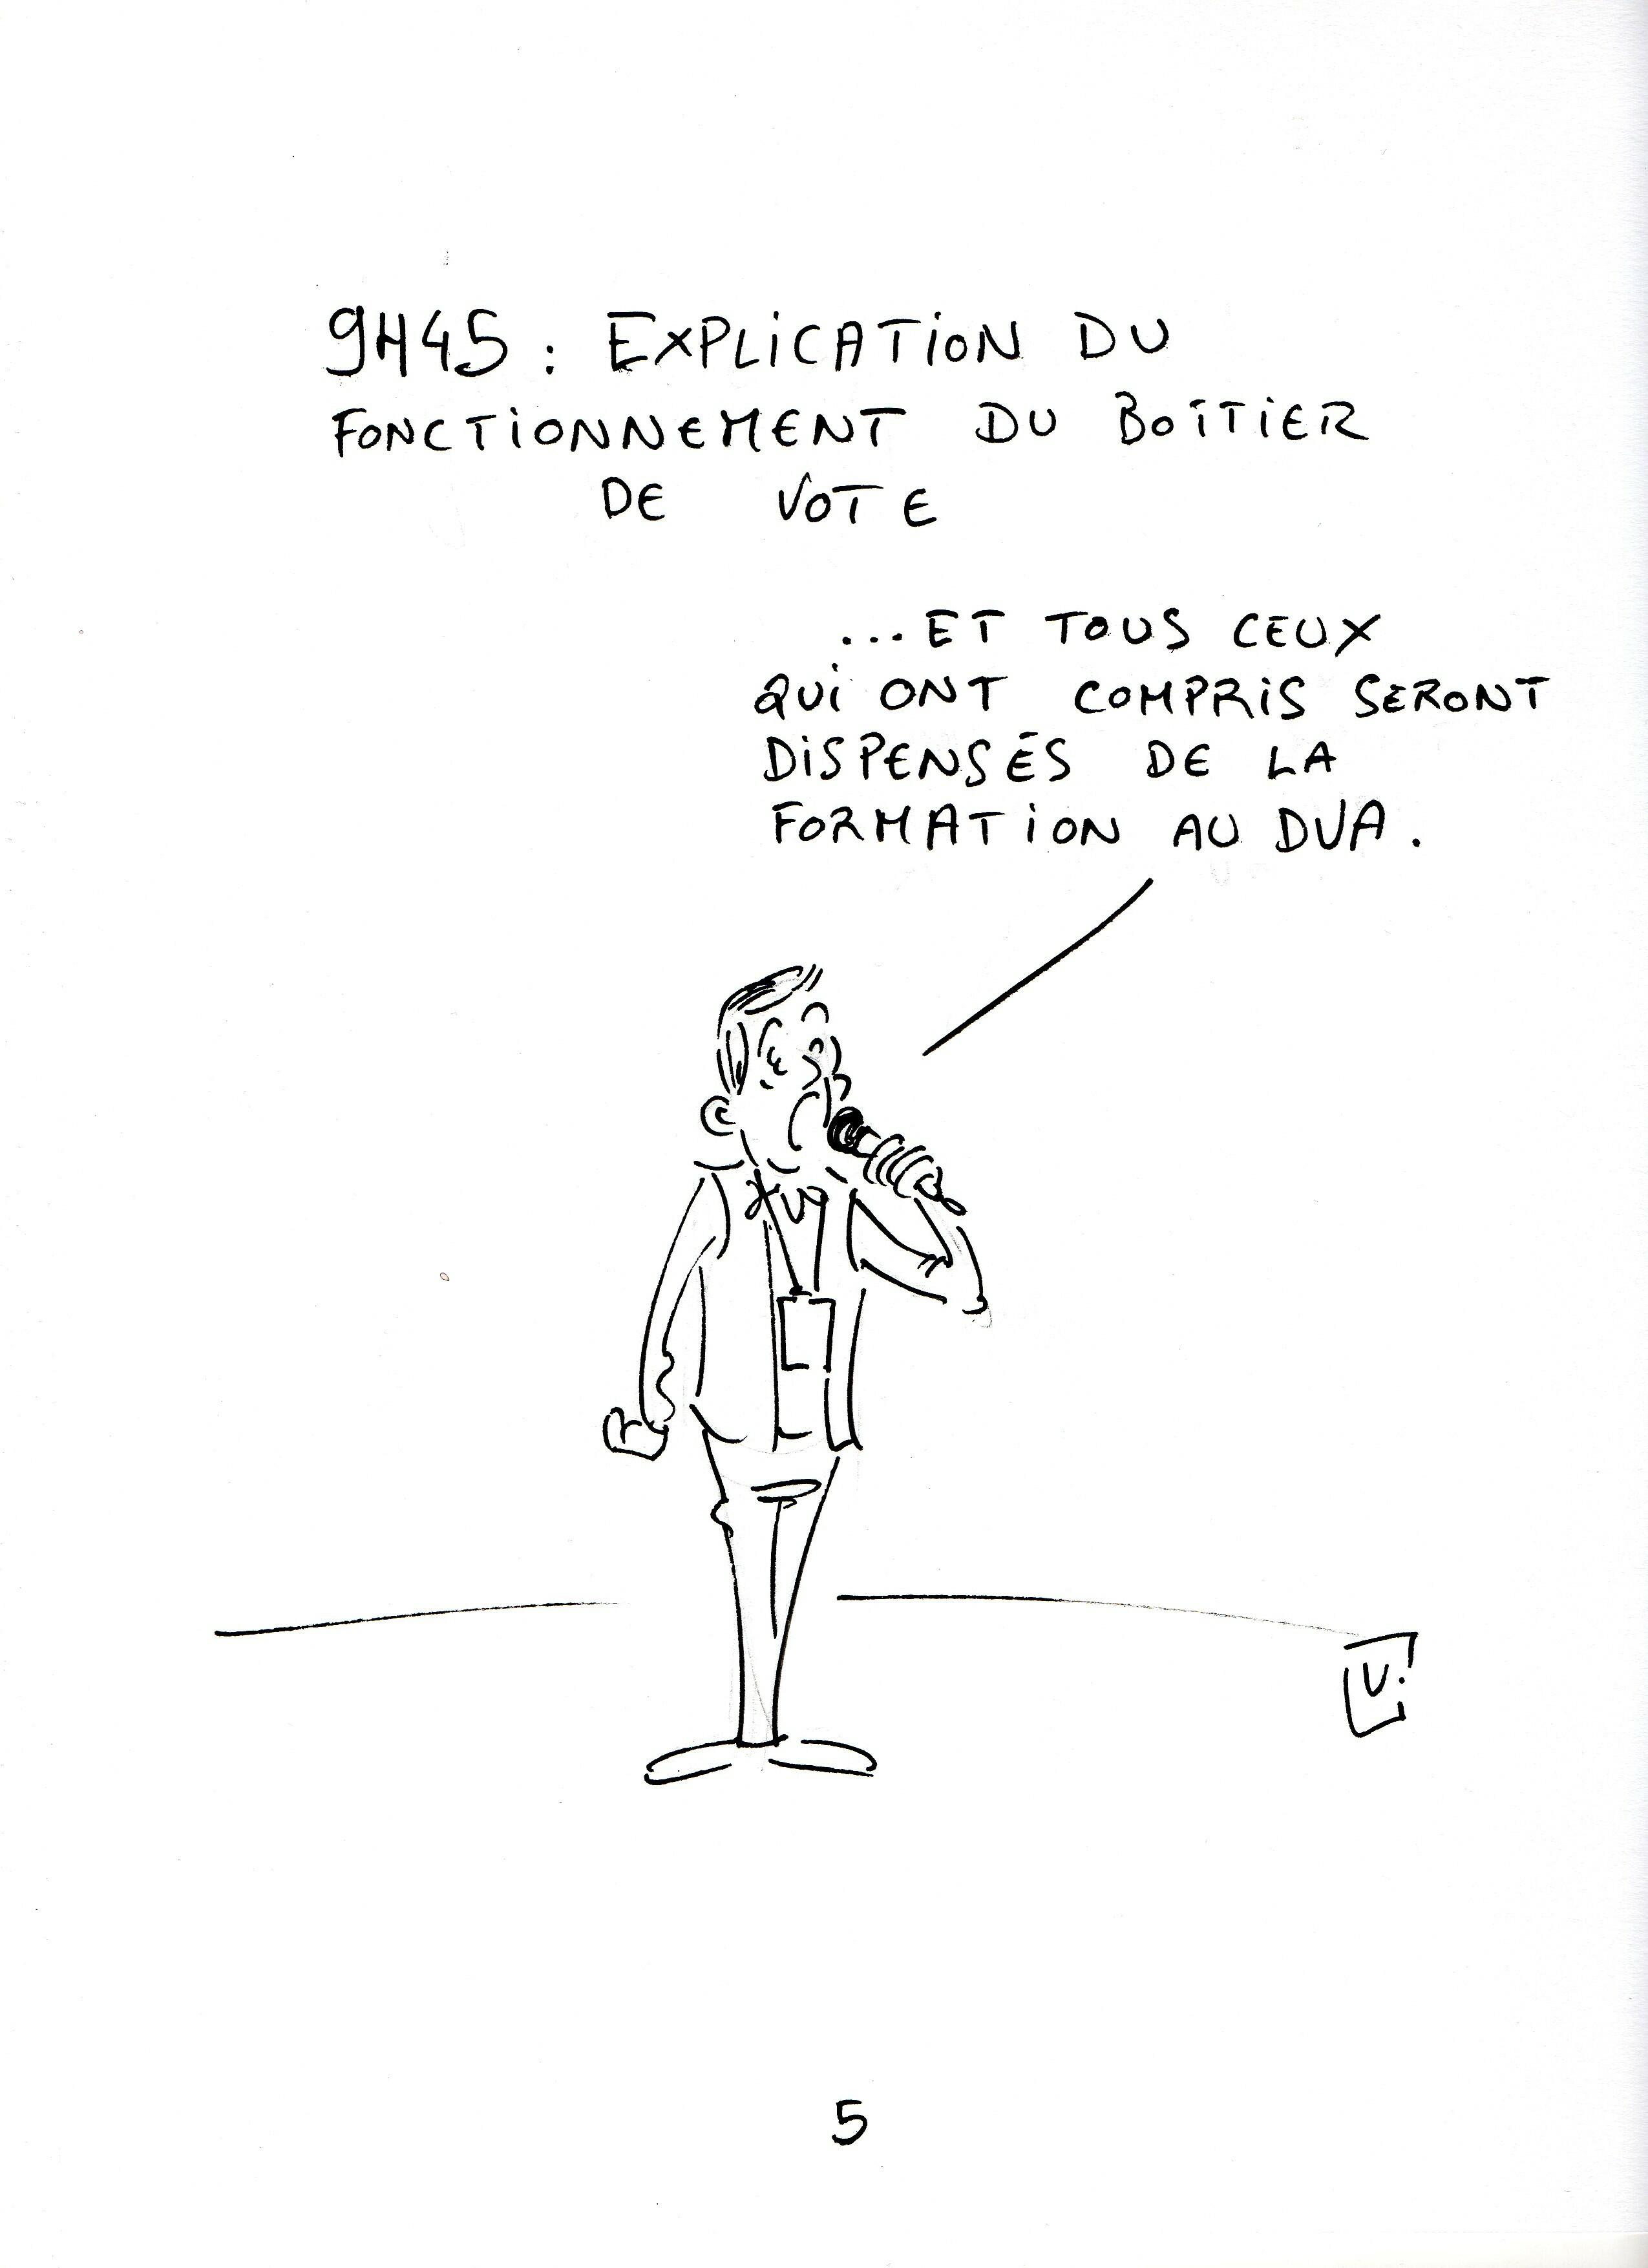 9H45 : EXPLICATION DU
FONCTIONNEMENT DU BOÎTIER
DE VOTE
...ET TOUS CEUX
QUI ONT COMPRIS SERONT
DISPENSÉS DE LA
FORMATION AU DVA.
V.
5